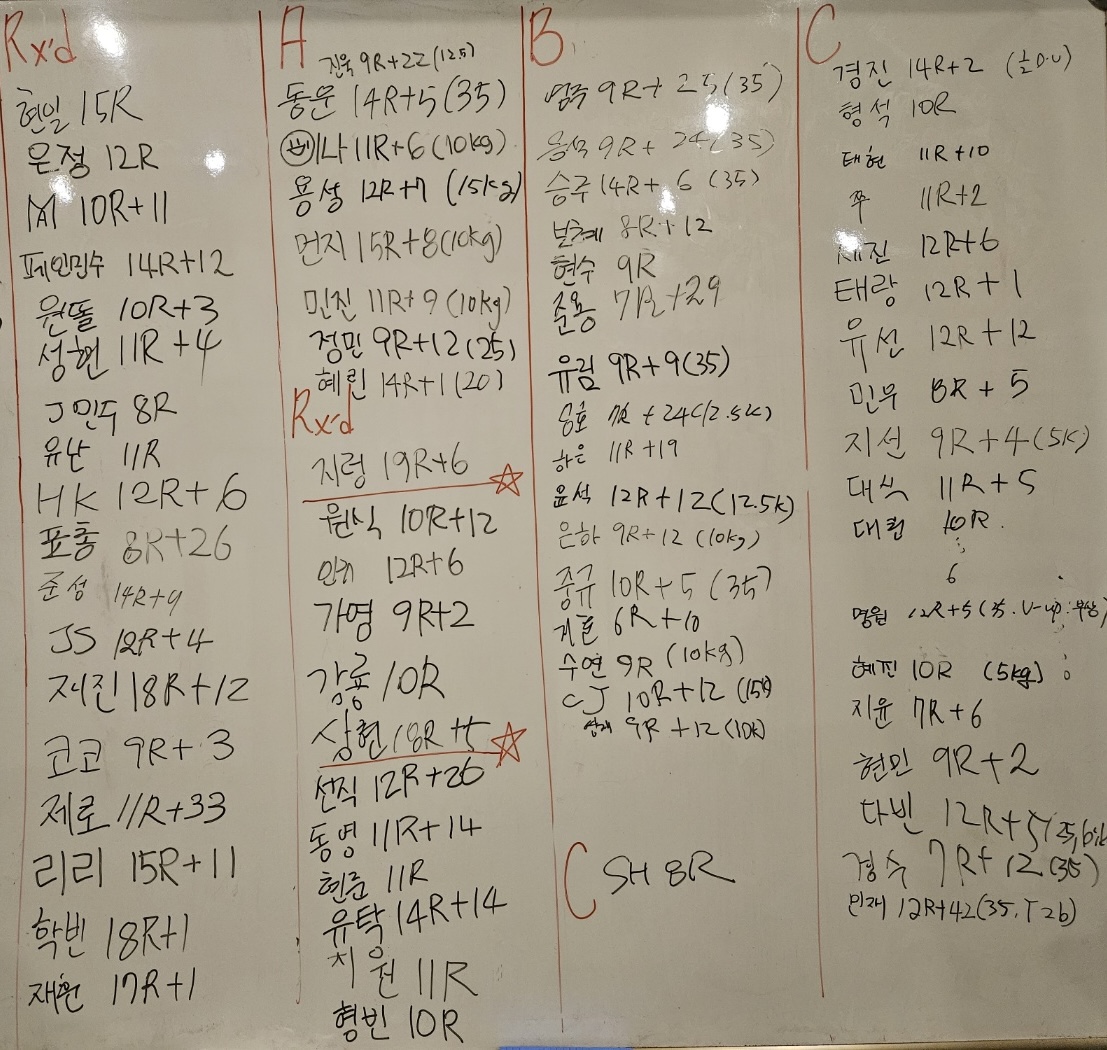 Rx'd
현일 15R
은정 12R
M 10R+11
페인민수 14R+12
원똘 10R+3
성현 11R+4
J민수 8R
유난 11R
HK 12R+6
표총 8R+26
준성 14R+9
JS 12R+4
재진 18R+12
코코 9R+3
제로 11R+33
리리 15R+11
학빈 18R+1
재환 17R+1
A
진욱 9R+22(12.5)
동문 14R+5(35)
세나 11R+6(10kg)
용성 12R+7 (15kg)
먼지 15R+8(10kg)
민진 11R+9(10kg)
정민 9R+12(25)
혜린 14R+1(20)
Rx'd
지렁 19R+6 ☆
원식 10R+12
12R+6
가영 9R+2
강룡 10R
상현 18R+5 ☆
선직 12R+26
동영 11R+14
현준 11R
유탁 14R+14
지원 11R
형빈 10R
B
9R+25(35)
용석 9R+24(35)
승주 14R+6 (35)
보혜 8R+12
현수 9R
준용 7R+29
유림 9R+9(35)
7R+24(12.5K)
하은 11R+19
윤석 12R+12(12.5K)
은하 9R+12(10kg)
중규 10R+5(35)
6R+10
수연 9R (10kg)
CJ 10R+12 (15K)
9R+12(10K)
C SH 8R
C
경진 14R+2 (D.U)
형석 10R
태현 11R+10
쭈 11R+2
12R+6
태랑 12R+1
유선 12R+12
민우 8R+5
지선 9R+4(5K)
대식 11R+5
대원 10R
6
명원 12R+5(35. V-up:부상)
혜진 10R (5kg)
지윤 7R+6
현민 9R+2
다빈 12R+5
경수 7R+12(35)
민재 12R+42(35, T2b)